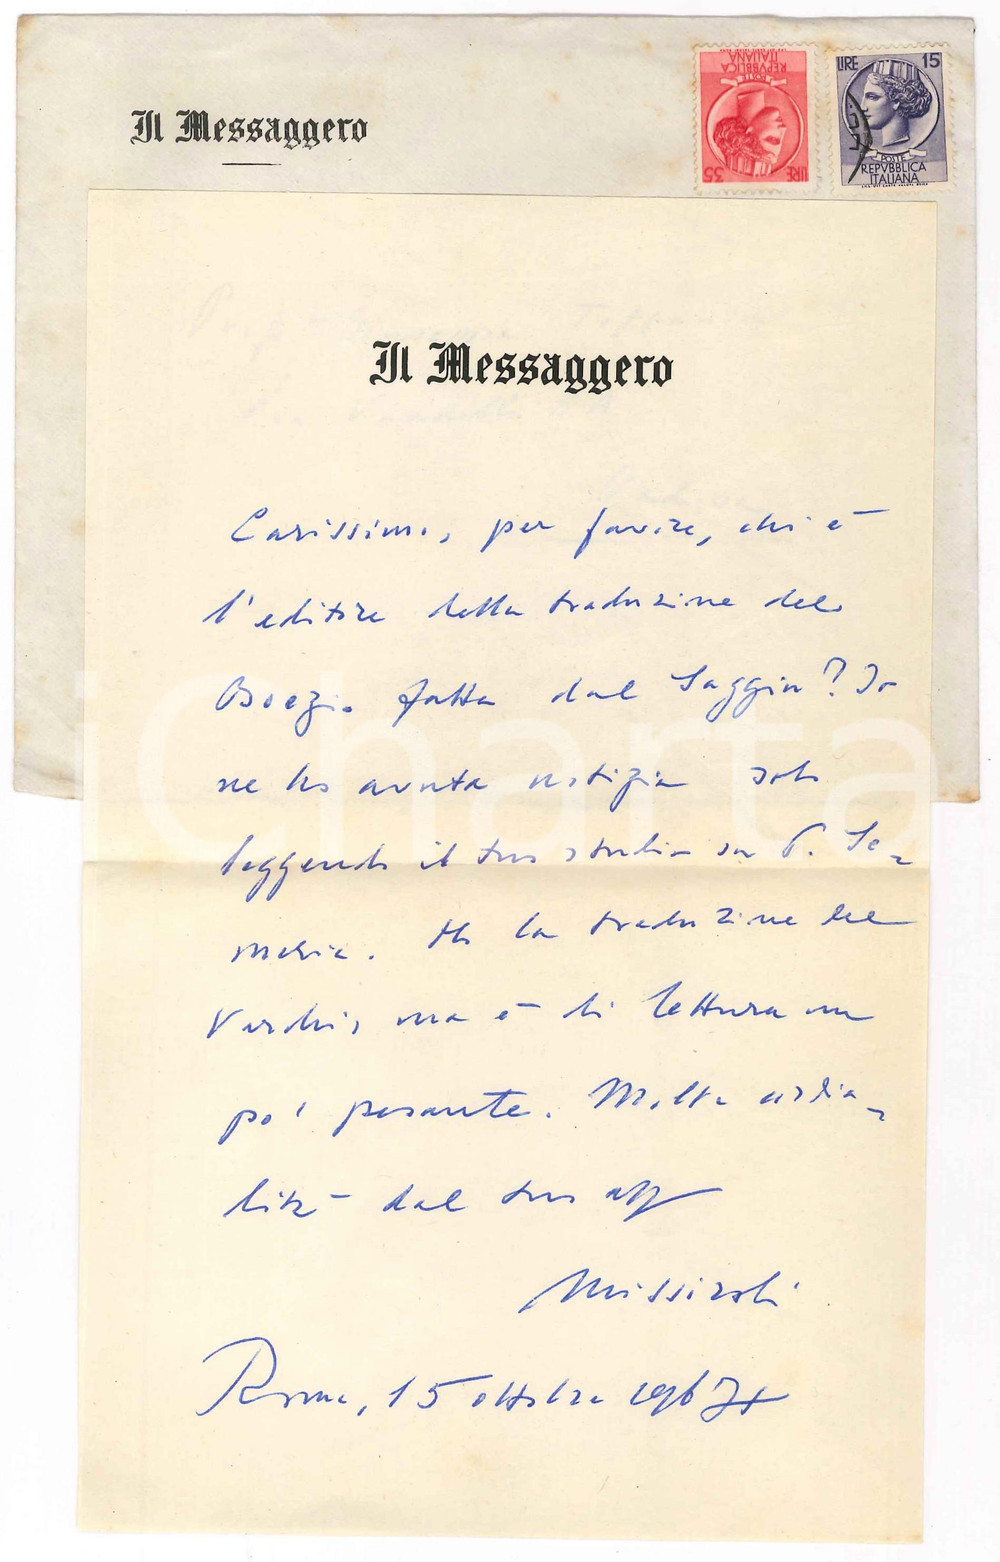 Il Messaggero
LIRE 35
POSTE
REPVBBLICA
ITALIANA
LIRE 15
POSTE
REPVBBLICA
ITALIANA
Il Messaggero
Carissimo, per favore, chi è
l'editore della traduzione del
Boezio fatta dal Saggio? Io
ne ho avuta notizia solo
leggendo il tuo studio su
meria. Ho la traduzione del
Varchi, ma è di lettura un
po' pesante. Molta cordia-
lità dal tuo aff
Missiroli
Roma, 15 ottobre 1967
iCharta